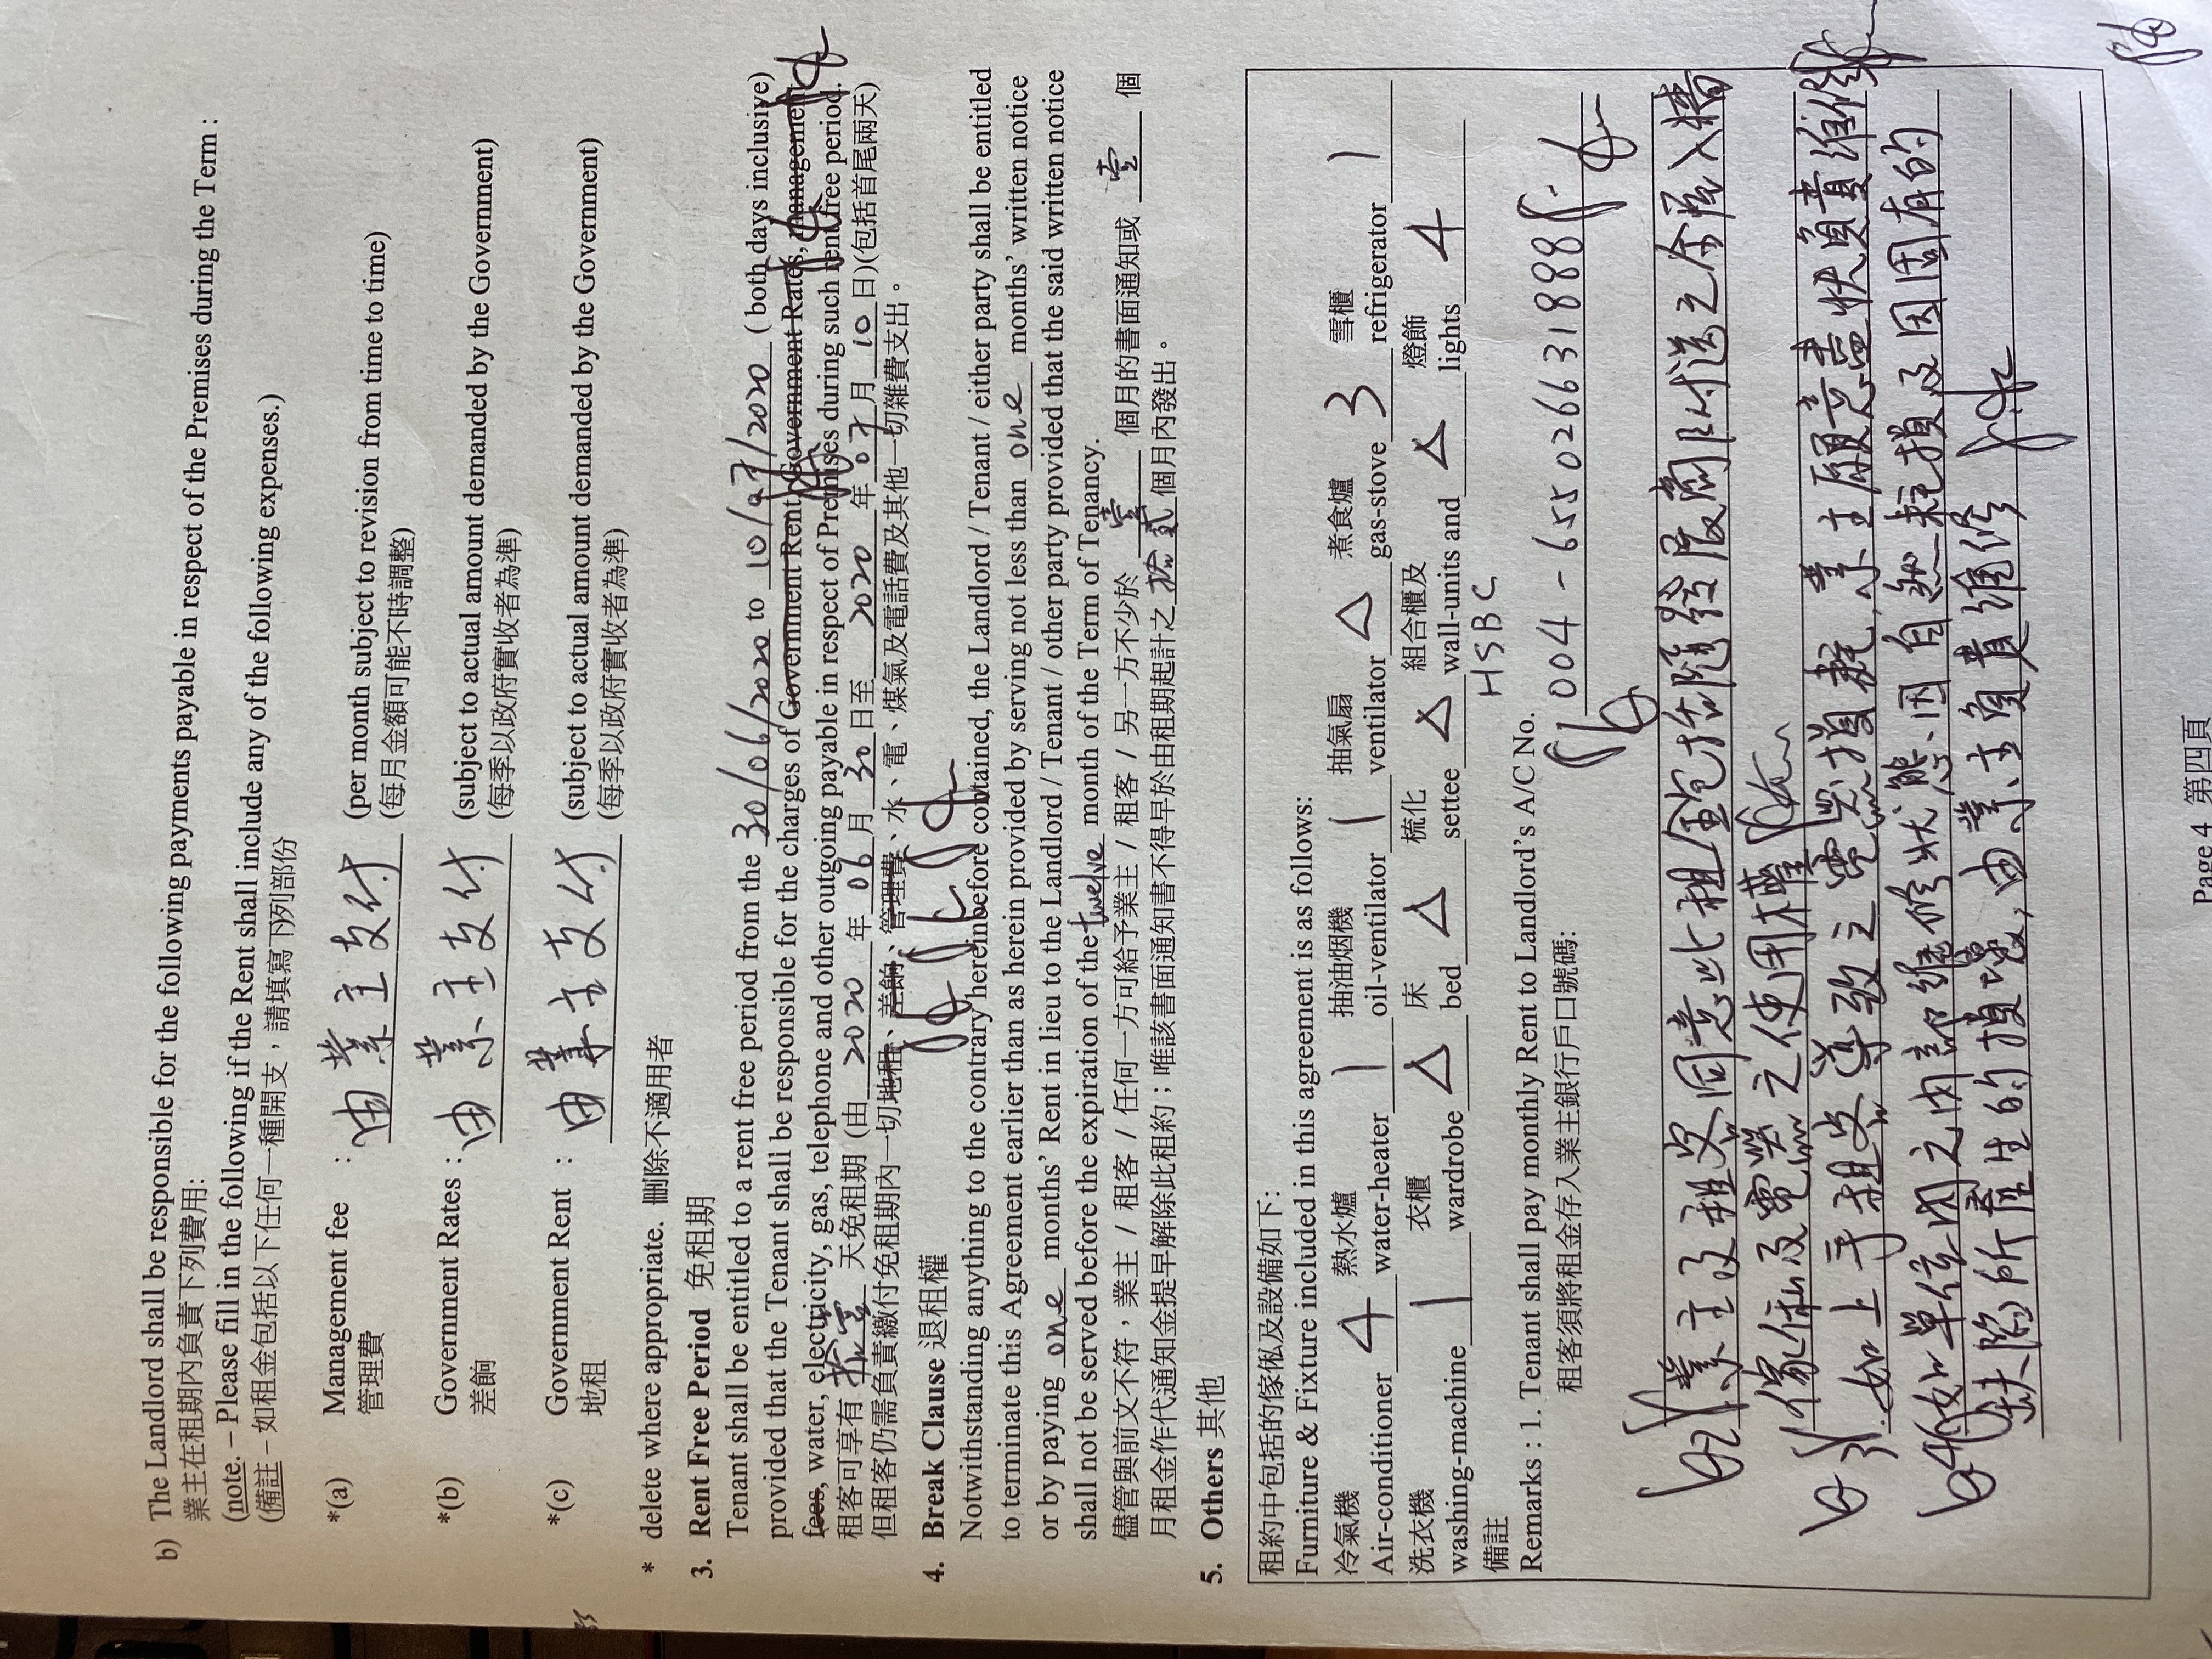 b) The Landlord shall be responsible for the following payments payable in respect of the Premises during the Term :
業主在租期內負責下列費用:
(note. – Please fill in the following if the Rent shall include any of the following expenses.)
(備註 – 如租金包括以下任何一種開支，請填寫下列部份
*(a) Management fee : 由業主支付 (per month subject to revision from time to time)
管理費 (每月金額可能不時調整)
*(b) Government Rates : 由業主支付 (subject to actual amount demanded by the Government)
差餉 (每季以政府實收者為準)
*(c) Government Rent : 由業主支付 (subject to actual amount demanded by the Government)
地租 (每季以政府實收者為準)
* delete where appropriate. 刪除不適用者
3. Rent Free Period 免租期
Tenant shall be entitled to a rent free period from the 30/06/2020 to 10/07/2020 ( both days inclusive)
provided that the Tenant shall be responsible for the charges of Government Rent, Government Rates, management
fees, water, electricity, gas, telephone and other outgoing payable in respect of Premises during such rent free period.
租客可享有 拾壹 天免租期 (由 2020 年 06 月 30 日至 2020 年 07 月 10 日)(包括首尾兩天)
但租客仍需負責繳付免租期內一切地租、差餉、管理費、水、電、煤氣及電話費及其他一切雜費支出。
4. Break Clause 退租權
Notwithstanding anything to the contrary hereinbefore contained, the Landlord / Tenant / either party shall be entitled
to terminate this Agreement earlier than as herein provided by serving not less than one months' written notice
or by paying one months' Rent in lieu to the Landlord / Tenant / other party provided that the said written notice
shall not be served before the expiration of the twelve month of the Term of Tenancy.
儘管與前文不符，業主 / 租客 / 任何一方可給予業主 / 租客 / 另一方不少於 壹 個月的書面通知或 壹 個
月租金作代通知金提早解除此租約；唯該書面通知書不得早於由租期起計之 拾貳 個月內發出。
5. Others 其他
租約中包括的傢俬及設備如下:
Furniture & Fixture included in this agreement is as follows:
冷氣機 熱水爐 抽油烟機 抽氣扇 煮食爐 雪櫃
Air-conditioner 4 water-heater 1 oil-ventilator 1 ventilator △ gas-stove 3 refrigerator 1
洗衣機 衣櫃 床 梳化 組合櫃及 燈飾
washing-machine 1 wardrobe △ bed △ settee △ wall-units and △ lights 4
備註 HSBC
Remarks : 1. Tenant shall pay monthly Rent to Landlord's A/C No. 004-655026631888
租客須將租金存入業主銀行戶口號碼:
2) 業主及租客同意此租金包括隨發展商附送之全屋入牆
傢俬及電器之使用權
3) 如上手租客導致之電器損耗，業主願意盡快負責維修
4) 如單位內之內部維修狀態因自然耗損及因固有的
缺陷所產生的損壞，由業主負責維修
Page 4 第四頁